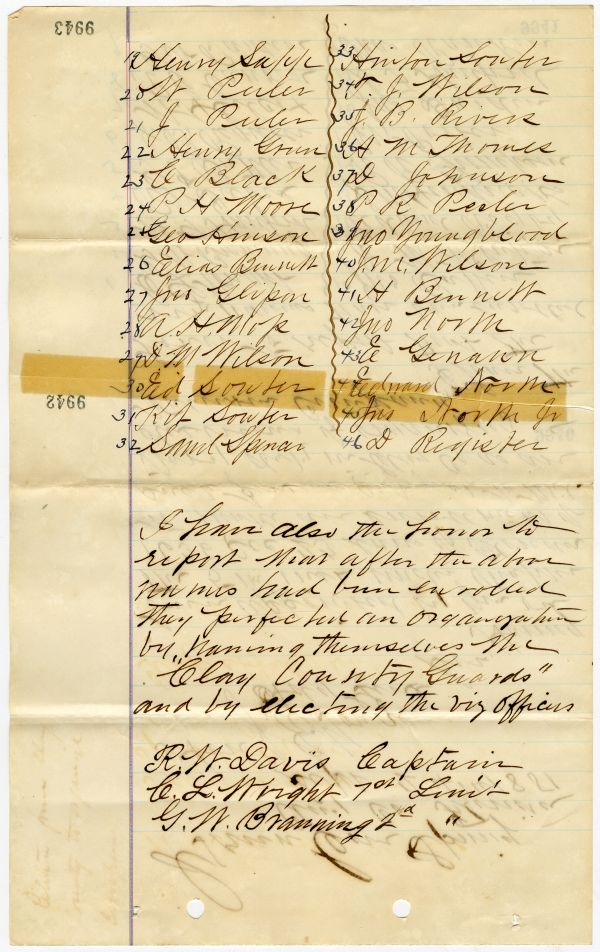 9943
19 Henry Sapp
20 W Peeler
21 J Peeler
22 Henry
23 C Black
24 P H Moore
25 Geo Hinson
26 Elias Bennett
27 Jno
28 A H
29 D M Wilson
30 Ed Sowter
31 Kit Sowter
32 Saml Spencer
33 Hinton Sowter
34 J Wilson
35 J B. Rivers
36 H M Thomes
37 D Johnson
38 P R Peeler
39 Jno Youngblood
40 Wilson
41 H Bennett
42 Jno North
43 E
44 Edward North
45 Jno North Jr
46 D Register
9942
I have also the honor to
report that after the above
names had been enrolled
they perfected an organization
by, naming themselves the
"Clay County Guards"
and by electing the viz officers
R. W. Davis Captain
C. L. Wright 1st Lieut
G. W. Branning 2d "